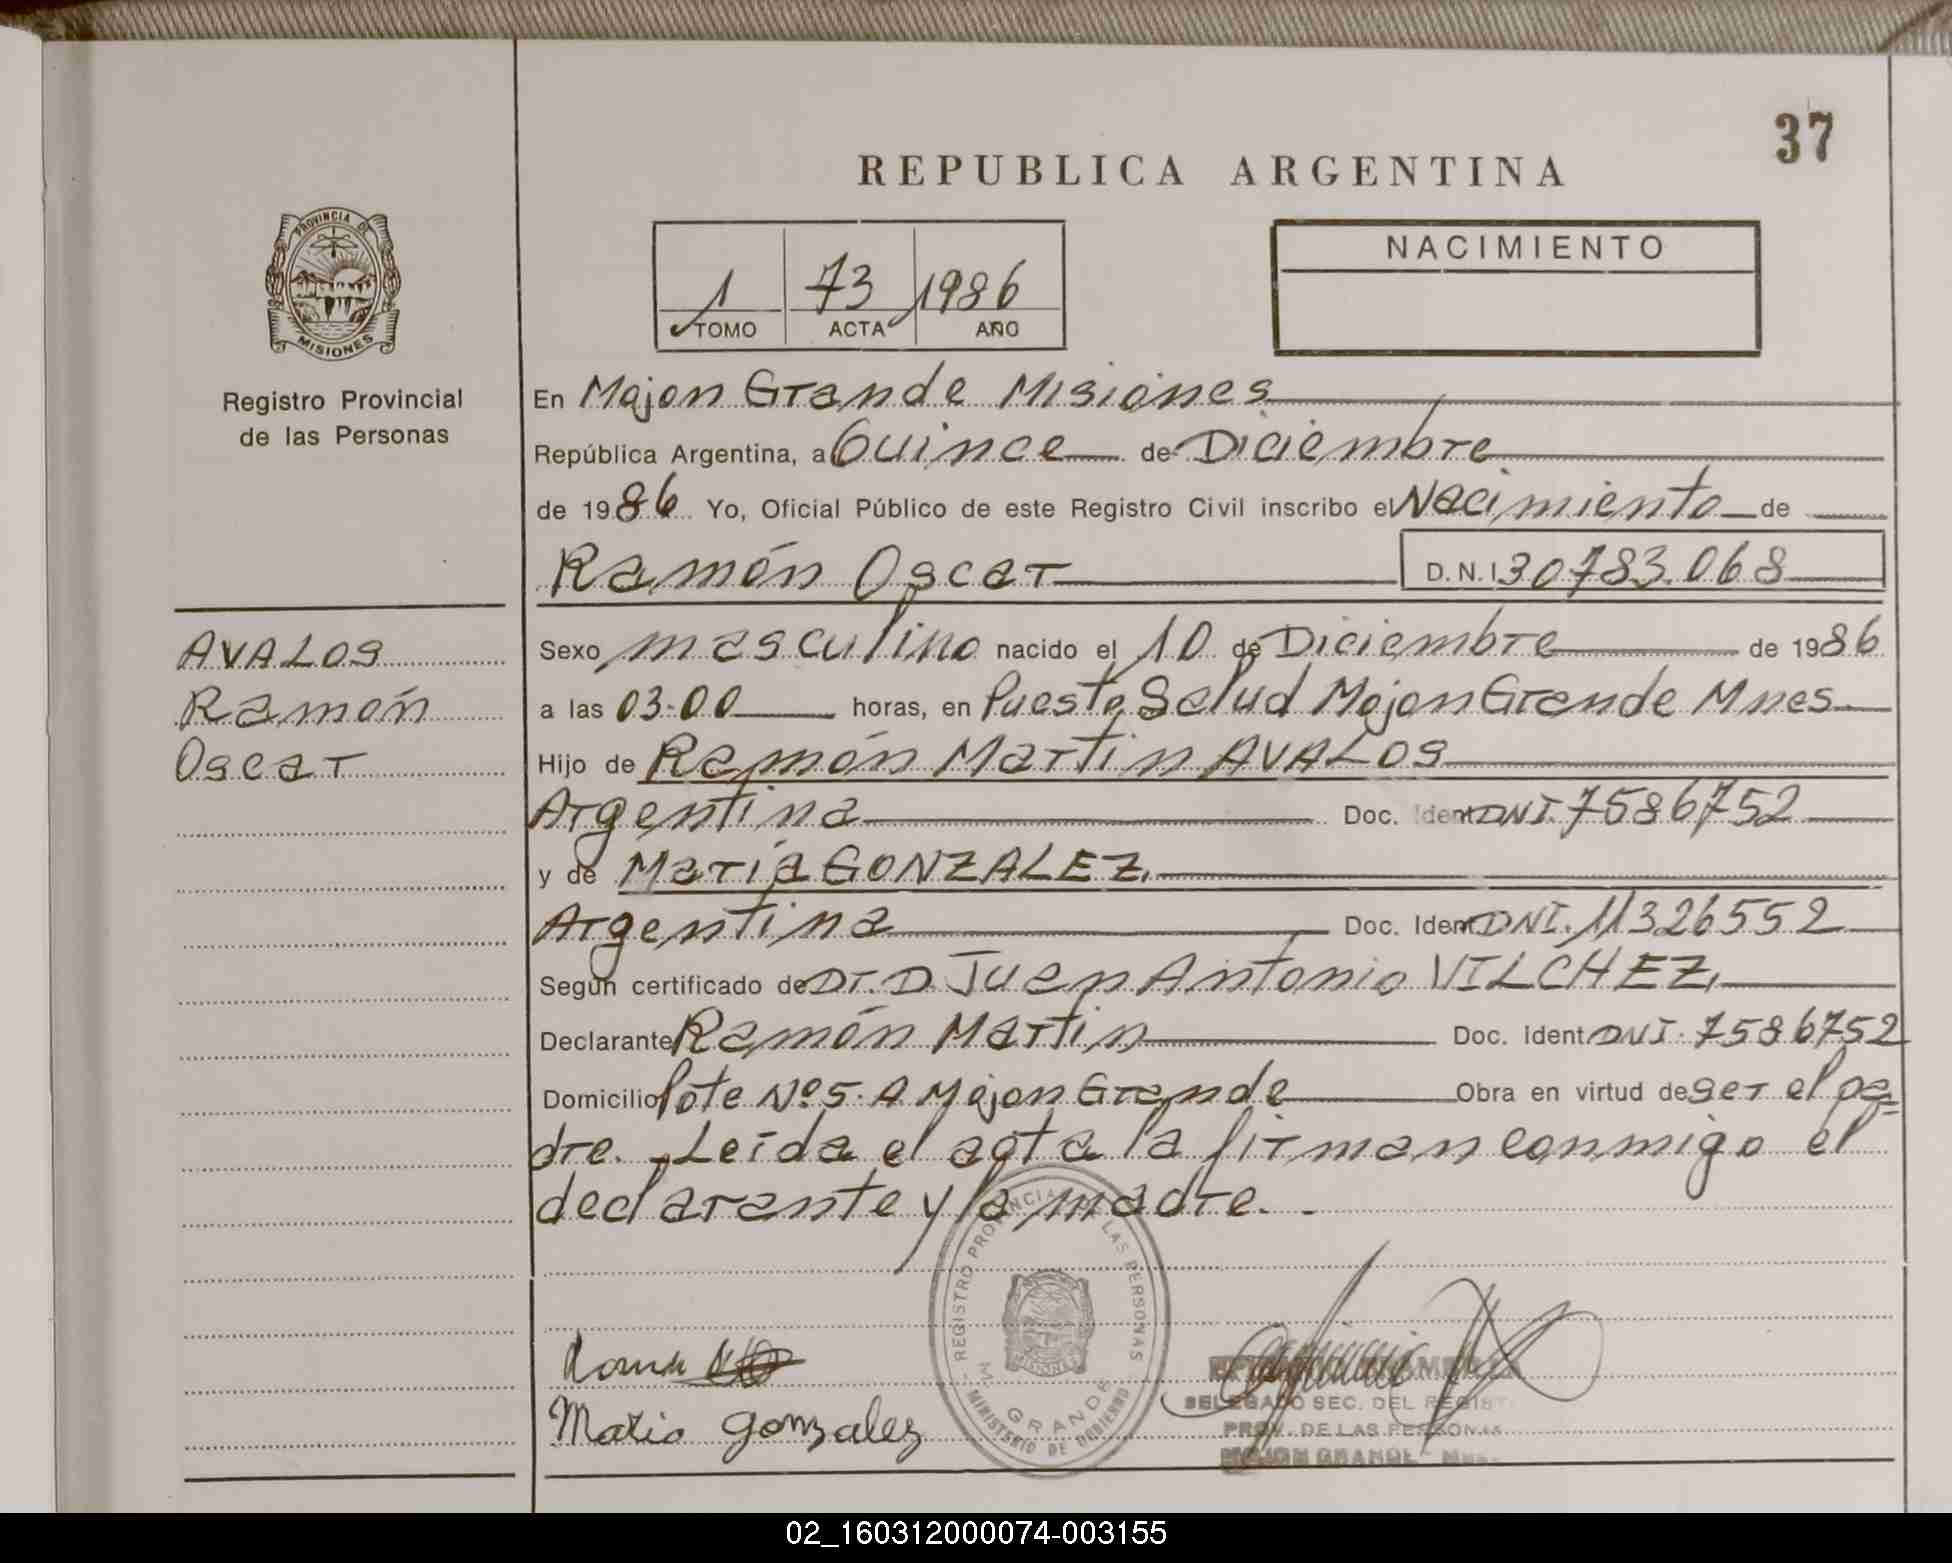 37
REPUBLICA ARGENTINA
PROVINCIA DE
MISIONES
Registro Provincial
de las Personas
1 73 1986
TOMO ACTA AÑO
NACIMIENTO
En Mojon Grande Misiones
República Argentina, a Quince de Diciembre
de 1986 Yo, Oficial Público de este Registro Civil inscribo el Nacimiento de
Ramón Oscar D.N.I 30783.068
AVALOS
Ramón
Oscar
Sexo masculino nacido el 10 de Diciembre de 1986
a las 03-00 horas, en Puesto Salud Mojon Grande Mnes.
Hijo de Ramón Martin AVALOS
Argentina Doc. Ident DNI. 7586752
y de María GONZALEZ,
Argentina Doc. Ident DNI. 11326552
Según certificado de Dr. D. Juan Antonio VILCHEZ,
Declarante Ramón Martin Doc. Ident DNI. 7586752
Domicilio lote Nº 5. A Mojon Grande Obra en virtud de ser el pa=
dre. - Leída el acta la firman conmigo el
declarante y la madre. -
REGISTRO PROVINCIAL DE LAS PERSONAS
M. GRANDE
MINISTERIO DE GOBIERNO
MISIONES
Maria gonzalez
DELEGADO SEC. DEL REGIST
PROV. DE LAS PERSONAS
MOJON GRANDE - Mnes.
02_160312000074-003155